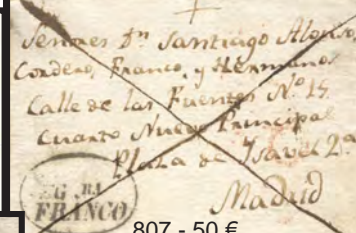 Señores Dn Santiago Alonso,
Cordero, Franco, y Hermano
Calle de las Fuentes Nº 15
Cuarto Nuevo Principal
Plaza de Ysavel 2ª
Madrid
FRANCO
807 - 50 €